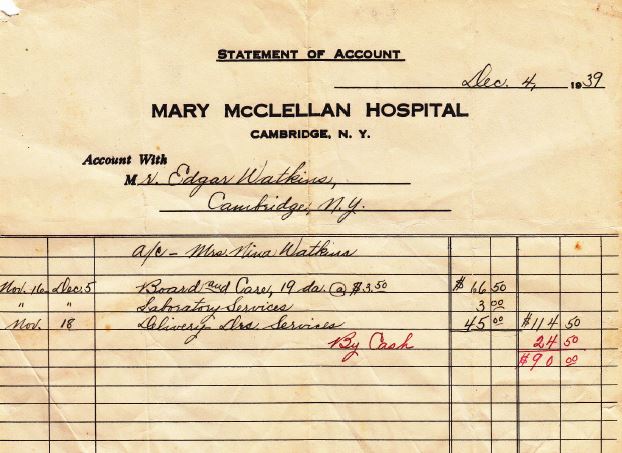 STATEMENT OF ACCOUNT
Dec. 4, 1939
MARY McCLELLAN HOSPITAL
CAMBRIDGE, N. Y.
Account With
Mr. Edgar Watkins,
Cambridge, N.Y.
a/c - Mrs. Nina Watkins
Nov. 16 Dec. 5 Board and Care, 19 da. @ $3.50 $66 50
" " Laboratory Services 3 00
Nov. 18 Delivery Drs. Services 45 00 $114 50
By Cash 24 50
$90 00